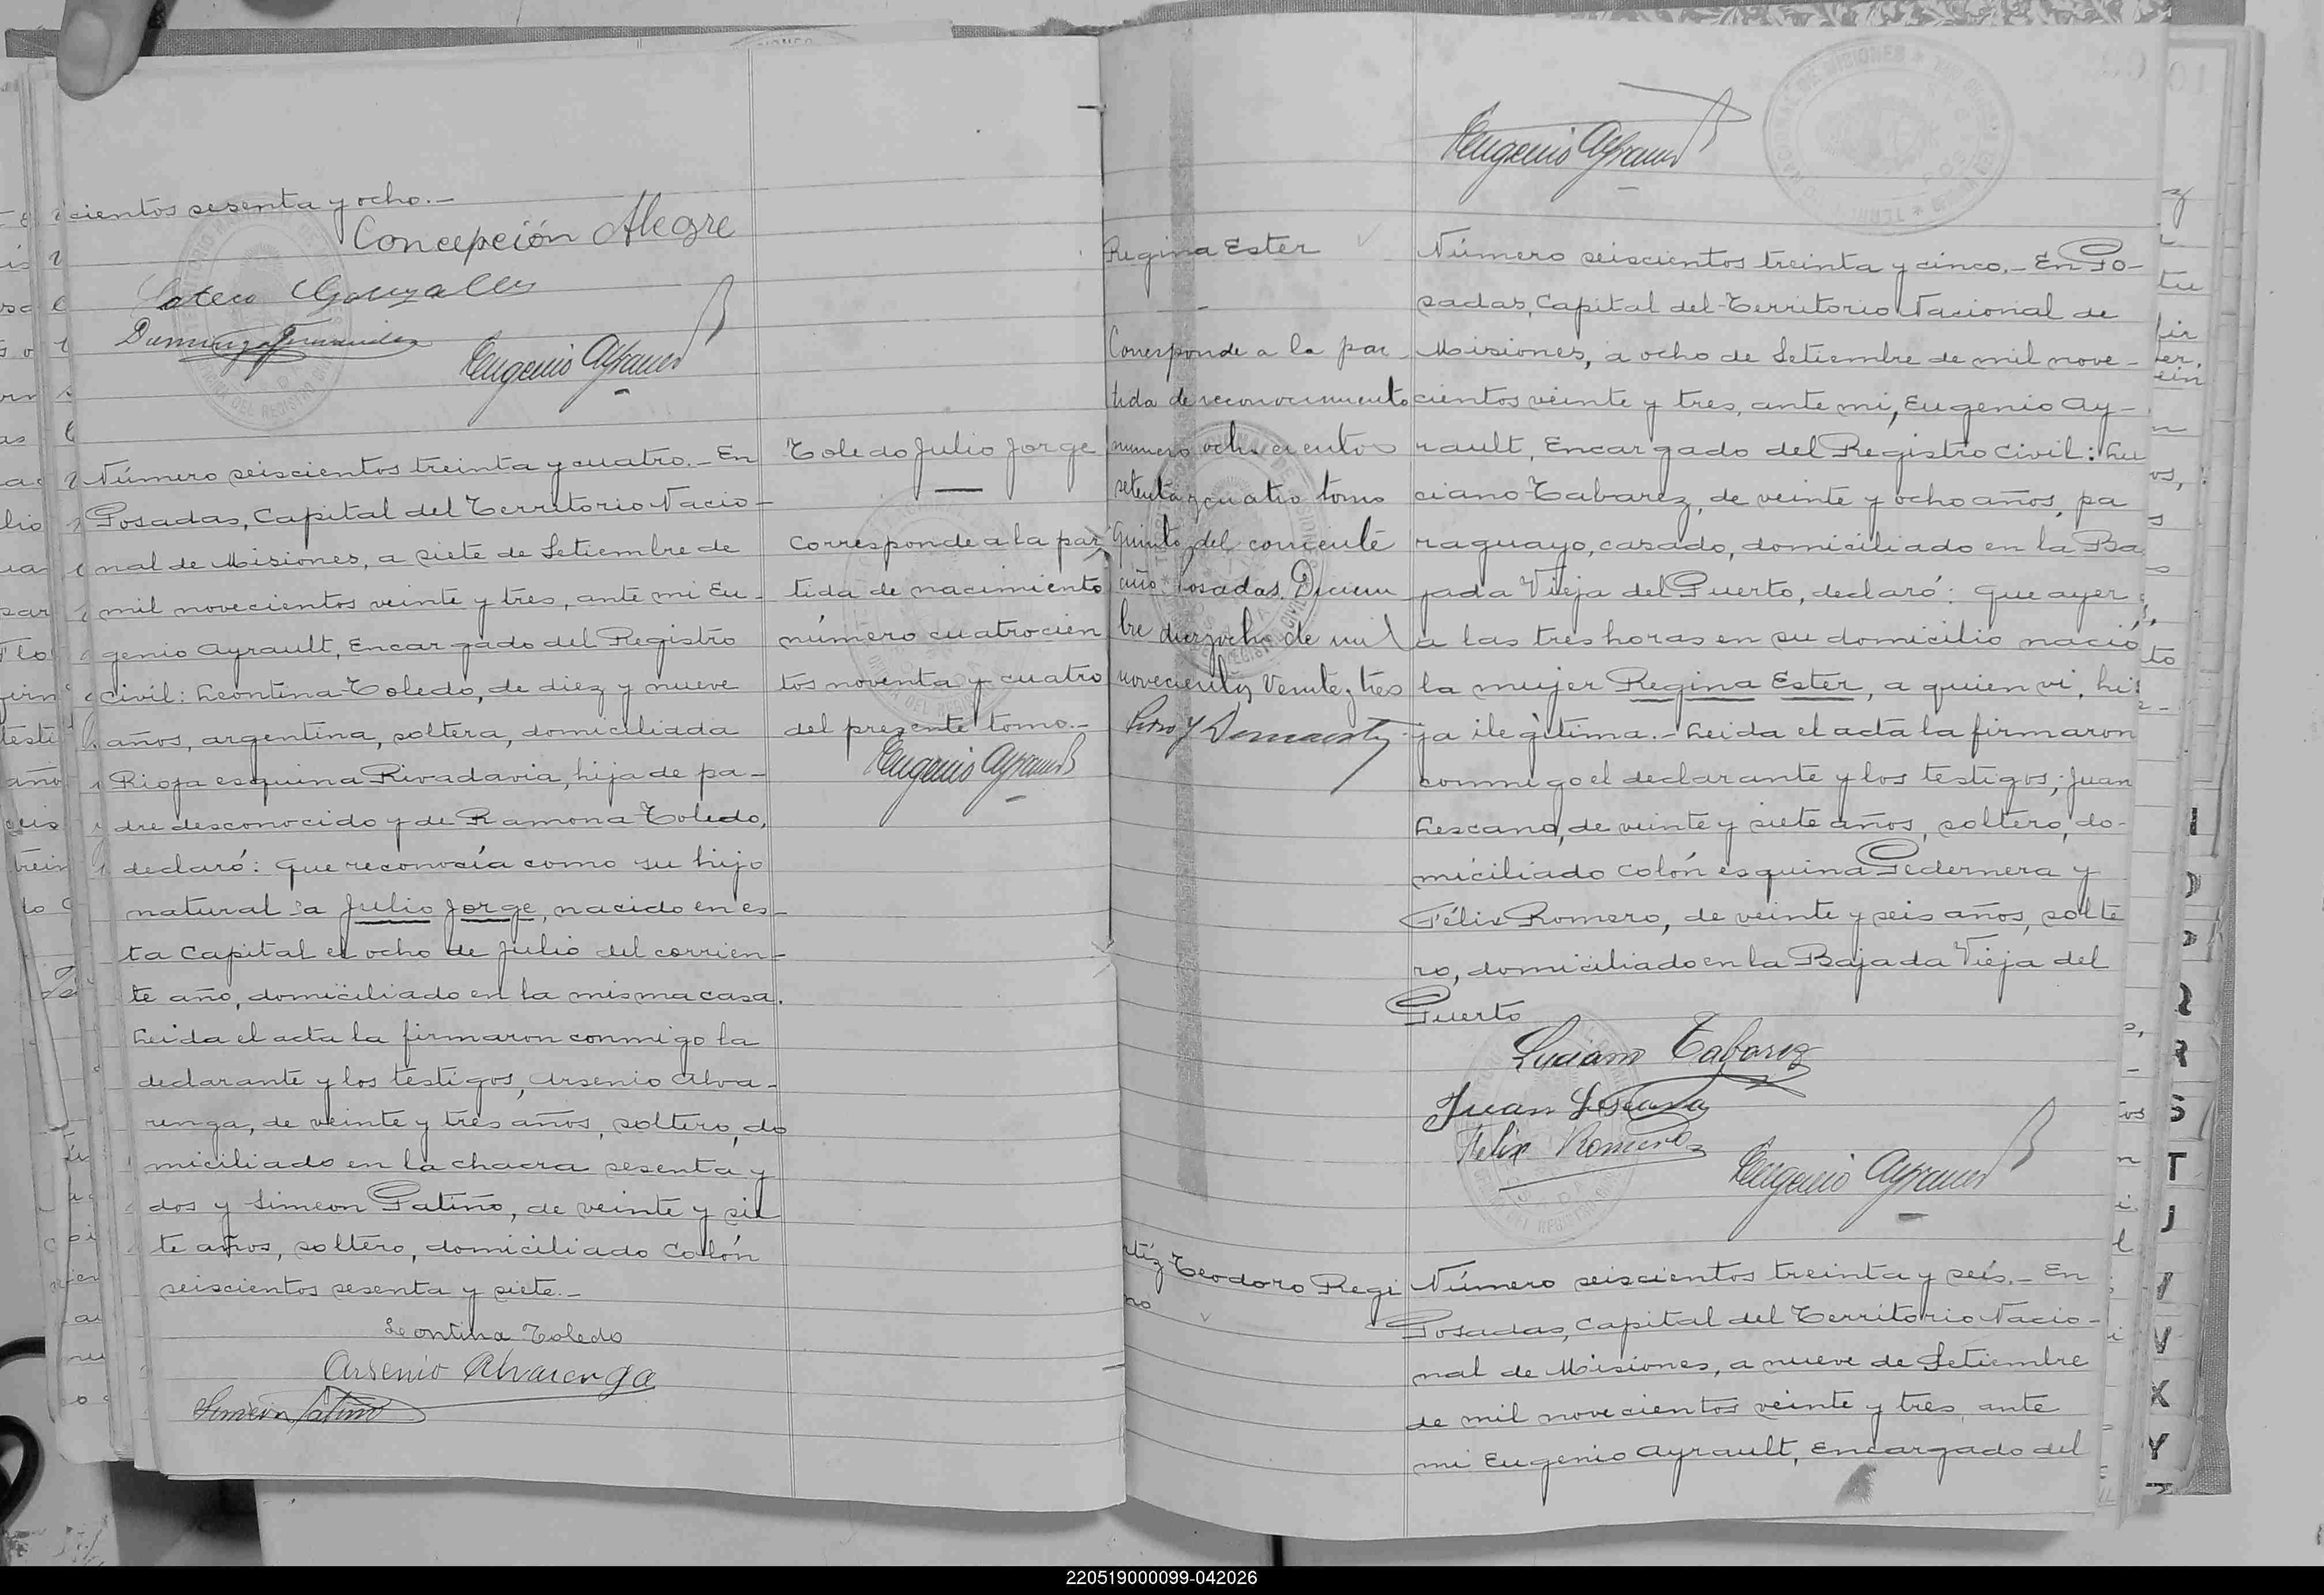 cientos sesenta y ocho.-
Concepción Alegre
Eugenio Ayrault
Número seiscientos treinta y cuatro.- En
Posadas, Capital del Territorio Nacio-
nal de Misiones, a siete de Setiembre de
mil novecientos veinte y tres, ante mi Eu-
genio Ayrault, Encargado del Registro
civil: Leontina Toledo, de diez y nueve
años, argentina, soltera, domiciliada
Rioja esquina Rivadavia, hija de pa-
dre desconocido y de Ramona Toledo,
declaró: Que reconocía como su hijo
natural a Julio Jorge, nacido en es-
ta Capital el ocho de Julio del corrien-
te año, domiciliado en la misma casa.
Leida el acta la firmaron conmigo la
declarante y los testigos, Arsenio Alva-
renga, de veinte y tres años, soltero, do
miciliado en la chacra sesenta y
dos y Simeon Patiño, de veinte y sie
te años, soltero, domiciliado Colón
seiscientos sesenta y siete.-
Leontina Toledo
Arsenio Alvarenga
Simeón Patiño
Toledo Julio Jorge
Corresponde a la par
tida de nacimiento
número cuatrocien
tos noventa y cuatro
del presente tomo.-
Eugenio Ayrault
Eugenio Ayrault
Regina Ester
Corresponde a la par-
tida de reconocimiento
numero ochocientos
setenta y cuatro tomo
Quinto del corriente
año Posadas, Diciem
bre diezyocho de mil
novecientos Veinte y tres
Número seiscientos treinta y cinco.- En Po-
sadas, Capital del Territorio Nacional de
Misiones, a ocho de Setiembre de mil nove-
cientos veinte y tres, ante mi, Eugenio Ay-
rault, Encargado del Registro Civil: Lu
ciano Tabarez, de veinte y ocho años, pa
raguayo, casado, domiciliado en la Ba
jada Vieja del Puerto, declaró: Que ayer
a las tres horas en su domicilio nació
la mujer Regina Ester, a quien vi, hi
ja ilegìtima.- Leida el acta la firmaron
conmigo el declarante y los testigos; Juan
Lescano, de veinte y siete años, soltero, do-
miciliado Colón esquina Pedernera y
Félix Romero, de veinte y seis años, solte
ro, domiciliado en la Bajada Vieja del
Puerto
Luciano Tabarez
Juan Lescano
Felix Romero
Eugenio Ayrault
Teodoro Regi
no
Número seiscientos treinta y seis.- En
Posadas, Capital del Territorio Nacio-
nal de Misiones, a nueve de Setiembre
de mil novecientos veinte y tres, ante
mi Eugenio Ayrault, Encargado del
S
T
J
V
X
Y
220519000099-042026